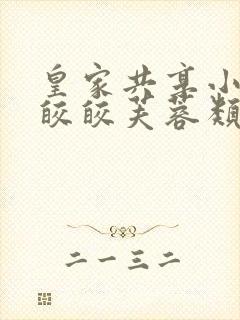 皇家共享小
皎皎芙蓉颜
二一三二